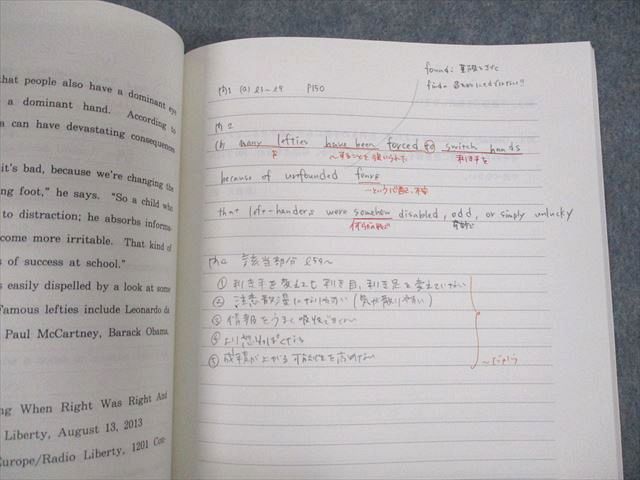 that people also have a dominant eye
a dominant hand. According to
a can have devastating consequences
it's bad, because we're changing the
ng foot," he says. "So a child who
to distraction; he absorbs informa-
come more irritable. That kind of
s of success at school."
s easily dispelled by a look at some
Famous lefties include Leonardo da
Paul McCartney, Barack Obama,
ng When Right Was Right And
Liberty, August 13, 2013
Europe/Radio Liberty, 1201 Con-
found:
find
問1 (a) l1~l9 P150
問2
(b) many lefties have been forced to switch hands
を ~することを強いられた 利き手を
because of unfounded fears
~という心配、不安
that left-handers were somehow disabled, odd, or simply unlucky
何らかの形で 奇妙な
問2 該当部分 l59~
① 利き手を変えても利き目、利き足を変えていない
② 注意散漫になりやすい (気が散りやすい)
③ 情報をうまく吸収できない
④ より怒りっぽくなる
⑤ 成績が上がる可能性を高めない
~だから